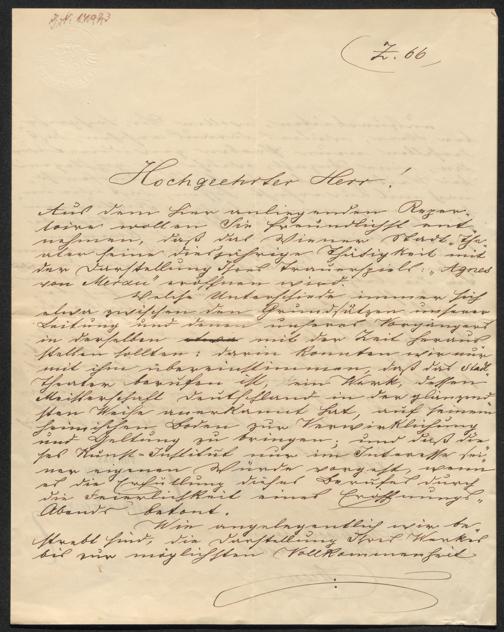 Z. 66
Hochgeehrter Herr!
Aus dem hier anliegenden Reper-
toire wollen Sie freundlichst ent
nehmen, daß das Wiener Stadt-The-
ater seine diesjährige Thätigkeit mit
der Darstellung Ihres Trauerspiels: „Agnes
von Meran" eröffnen wird.
Welche Unterschiede immer sich
etwa zwischen den Grundsätzen unserer
Leitung und denen unseres Vorgängers
in derselben etwa mit der Zeit heraus
stellen sollten: darin konnten wir nur
mit ihm übereinstimmen, daß das Stadt-
theater berufen ist, ein Werk, dessen
Meisterschaft Deutschland in der glänzend
sten Weise anerkannt hat, auf seinem
heimischen Boden zur Verwirklichung
und Geltung zu bringen, und daß die
ses Kunst-Institut nur im Interesse sei
ner eigenen Würde vorgeht, wenn
es die Erfüllung dieses Berufes durch
die Feierlichkeit eines Eröffnungs-
Abends betont.
Wie angelegentlich wir be-
strebt sind, die Darstellung Ihres Werkes
bis zur möglichsten Vollkommenheit